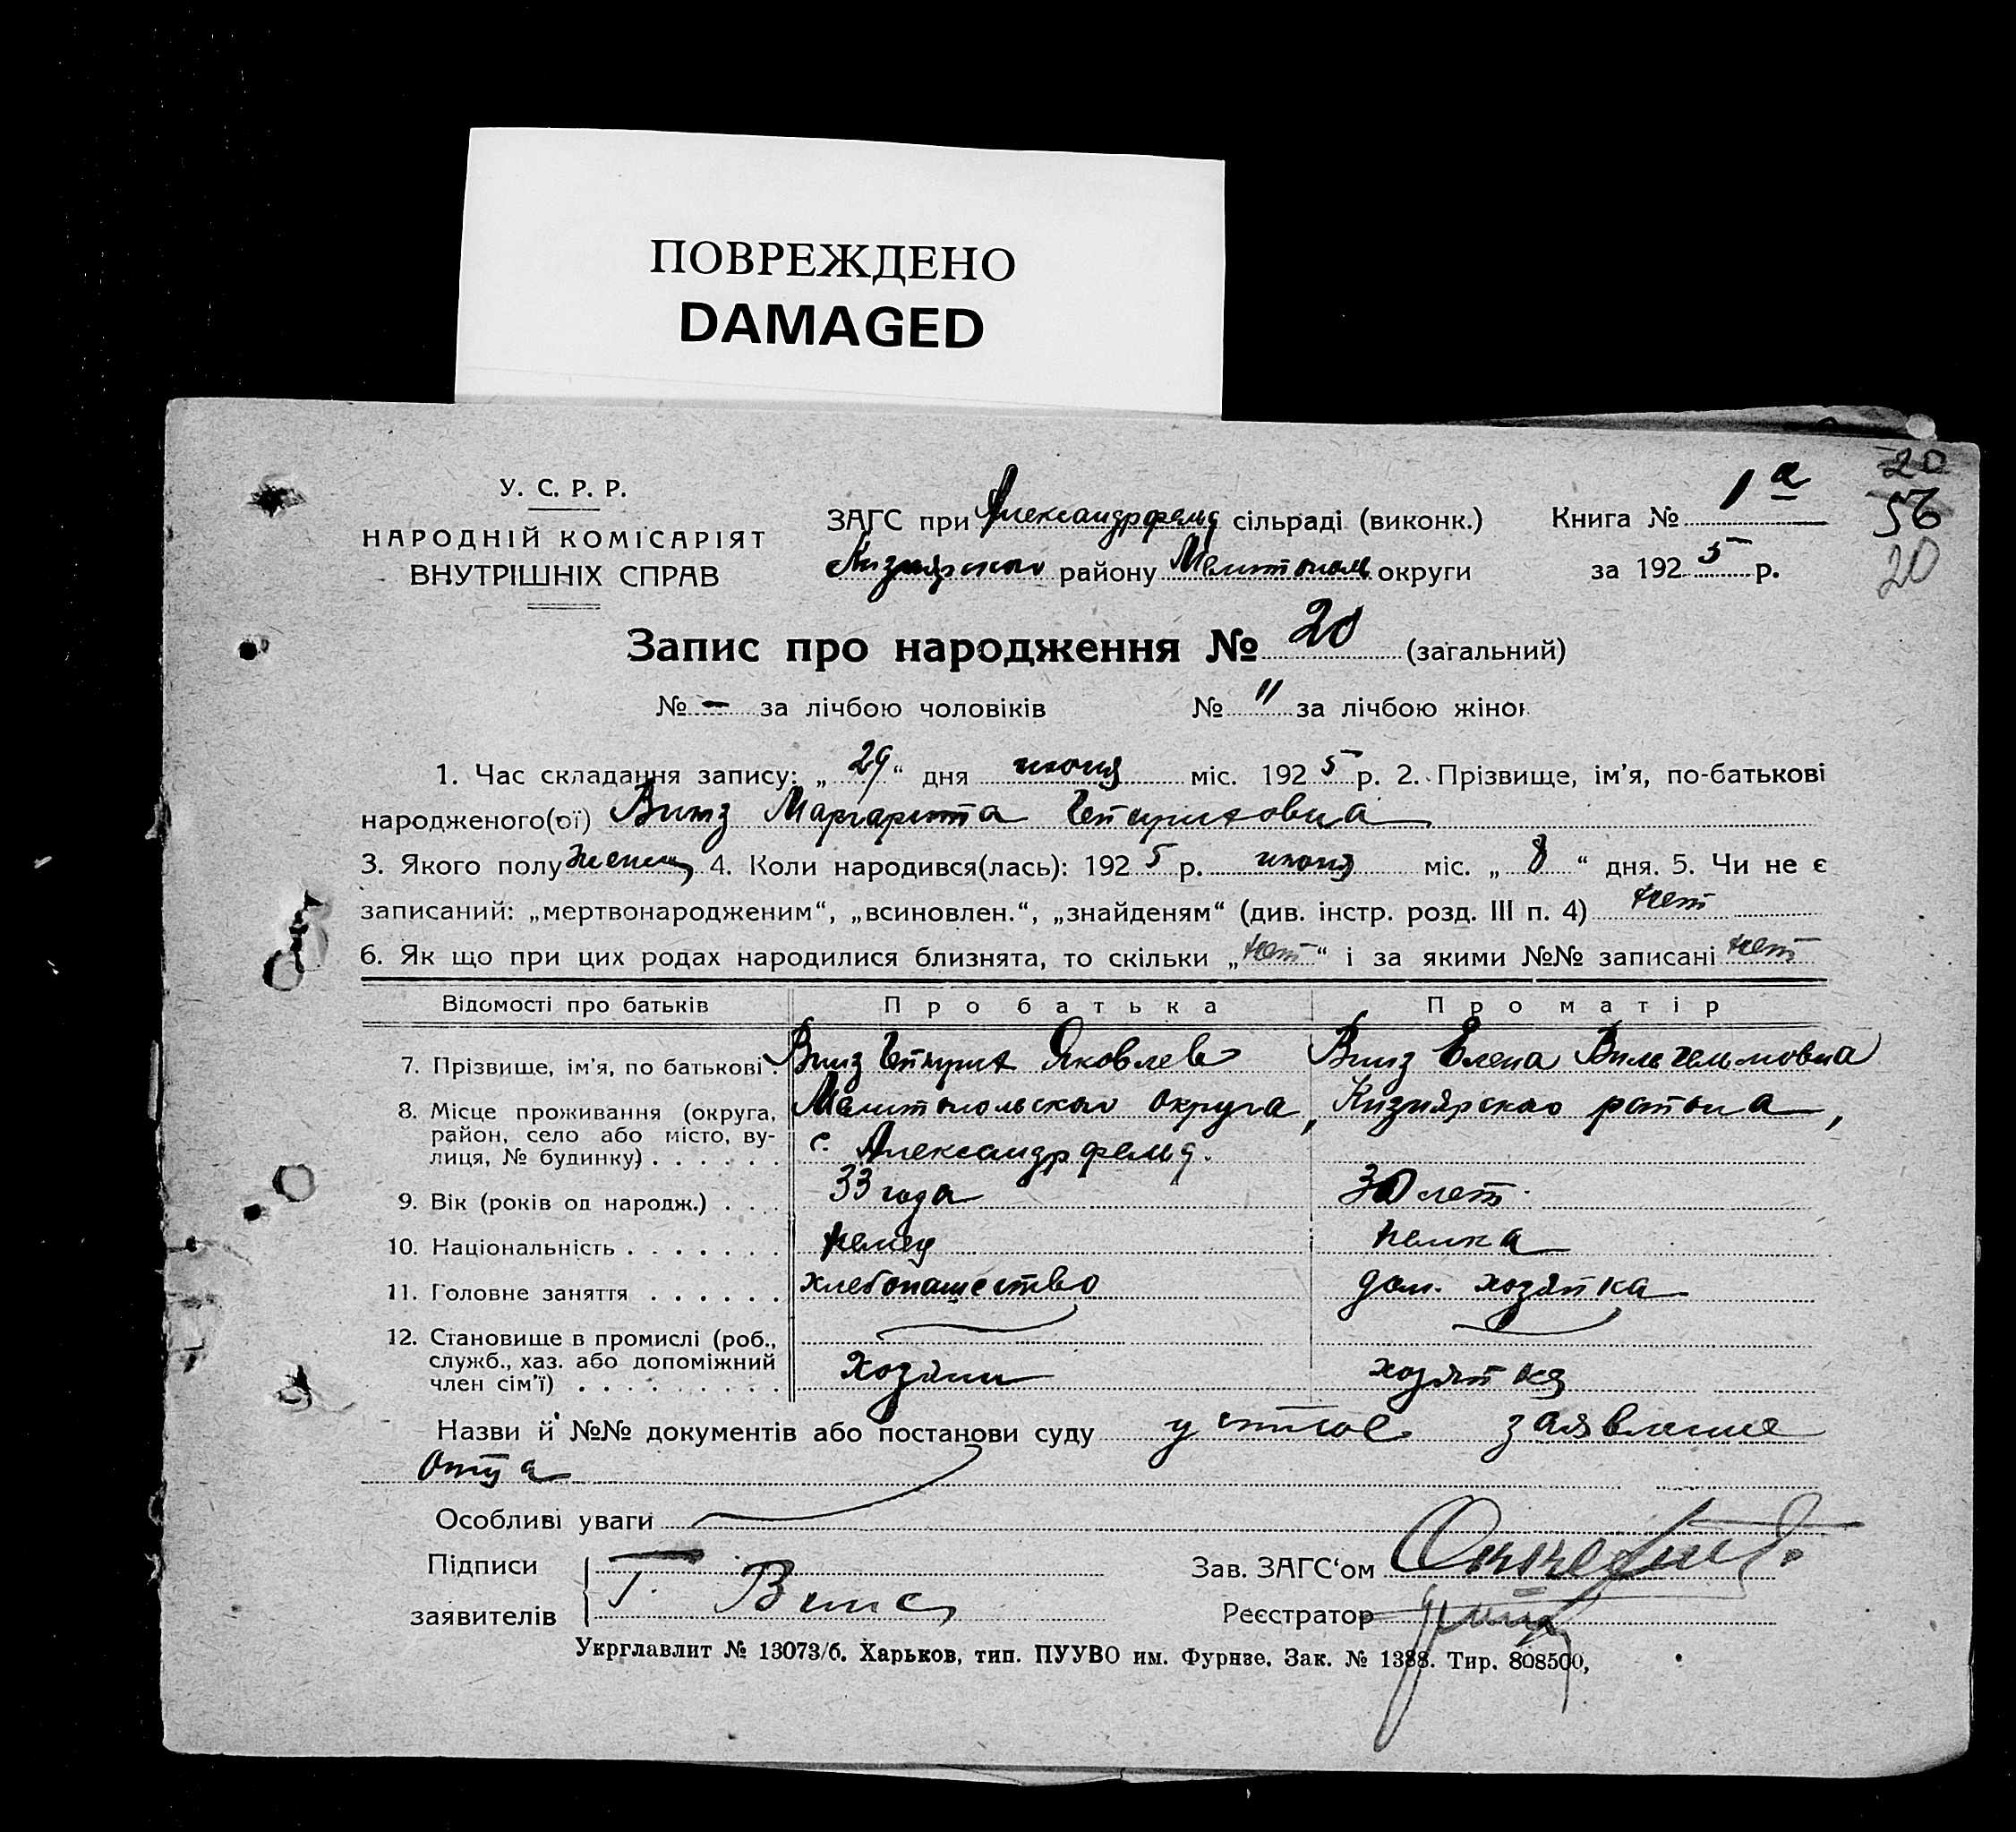 ПОВРЕЖДЕНО
DAMAGED
20
56
20
У. С. Р. Р.
НАРОДНІЙ КОМІСАРІЯТ
ВНУТРІШНІХ СПРАВ
ЗАГС при Александрфельд сільраді (виконк.)
Кизиярского району Мелитопол округи
Книга № 1а
за 1925 р.
Запис про народження № 20 (загальний)
№ - за лічбою чоловіків № 11 за лічбою жінок
1. Час складання запису: „29“ дня июня міс. 1925 р. 2. Прізвище, ім’я, по-батькові
народженого(ої) Витз Маргарита Генриховна
3. Якого полу женск 4. Коли народився(лась): 1925 р. июня міс. „8“ дня. 5. Чи не є
записаний: „мертвонародженим“, „всиновлен.“, „знайденям“ (див. інстр. розд. III п. 4) нет
6. Як що при цих родах народилися близнята, то скільки „нет“ і за якими №№ записані нет
Відомості про батьків Про батька Про матір
7. Прізвище, ім’я, по батькові. Витз Генрих Яковлев Витз Елена Вильгельмовна
8. Місце проживання (округа, Мелитопольского округа, Кизиярского района,
район, село або місто, ву-
лиця, № будинку) . . . . . . с. Александрфельд.
9. Вік (років од народж.) . . . 33 года 30 лет.
10. Національність . . . . . . . немец немка
11. Головне заняття . . . . . . хлебопашество дом. хозяйка
12. Становище в промислі (роб.,
служб., хаз. або допоміжний
член сім’ї) . . . . . . . . . хозяин хозяйка
Назви й №№ документів або постанови суду устное заявление
отца
Особливі уваги
Підписи
заявителів Г. Винс
Зав. ЗАГС‘ом
Реєстратор
Укрглавлит № 13073/б. Харьков, тип. ПУУВО им. Фурнзе. Зак. № 1388. Тир. 808500,